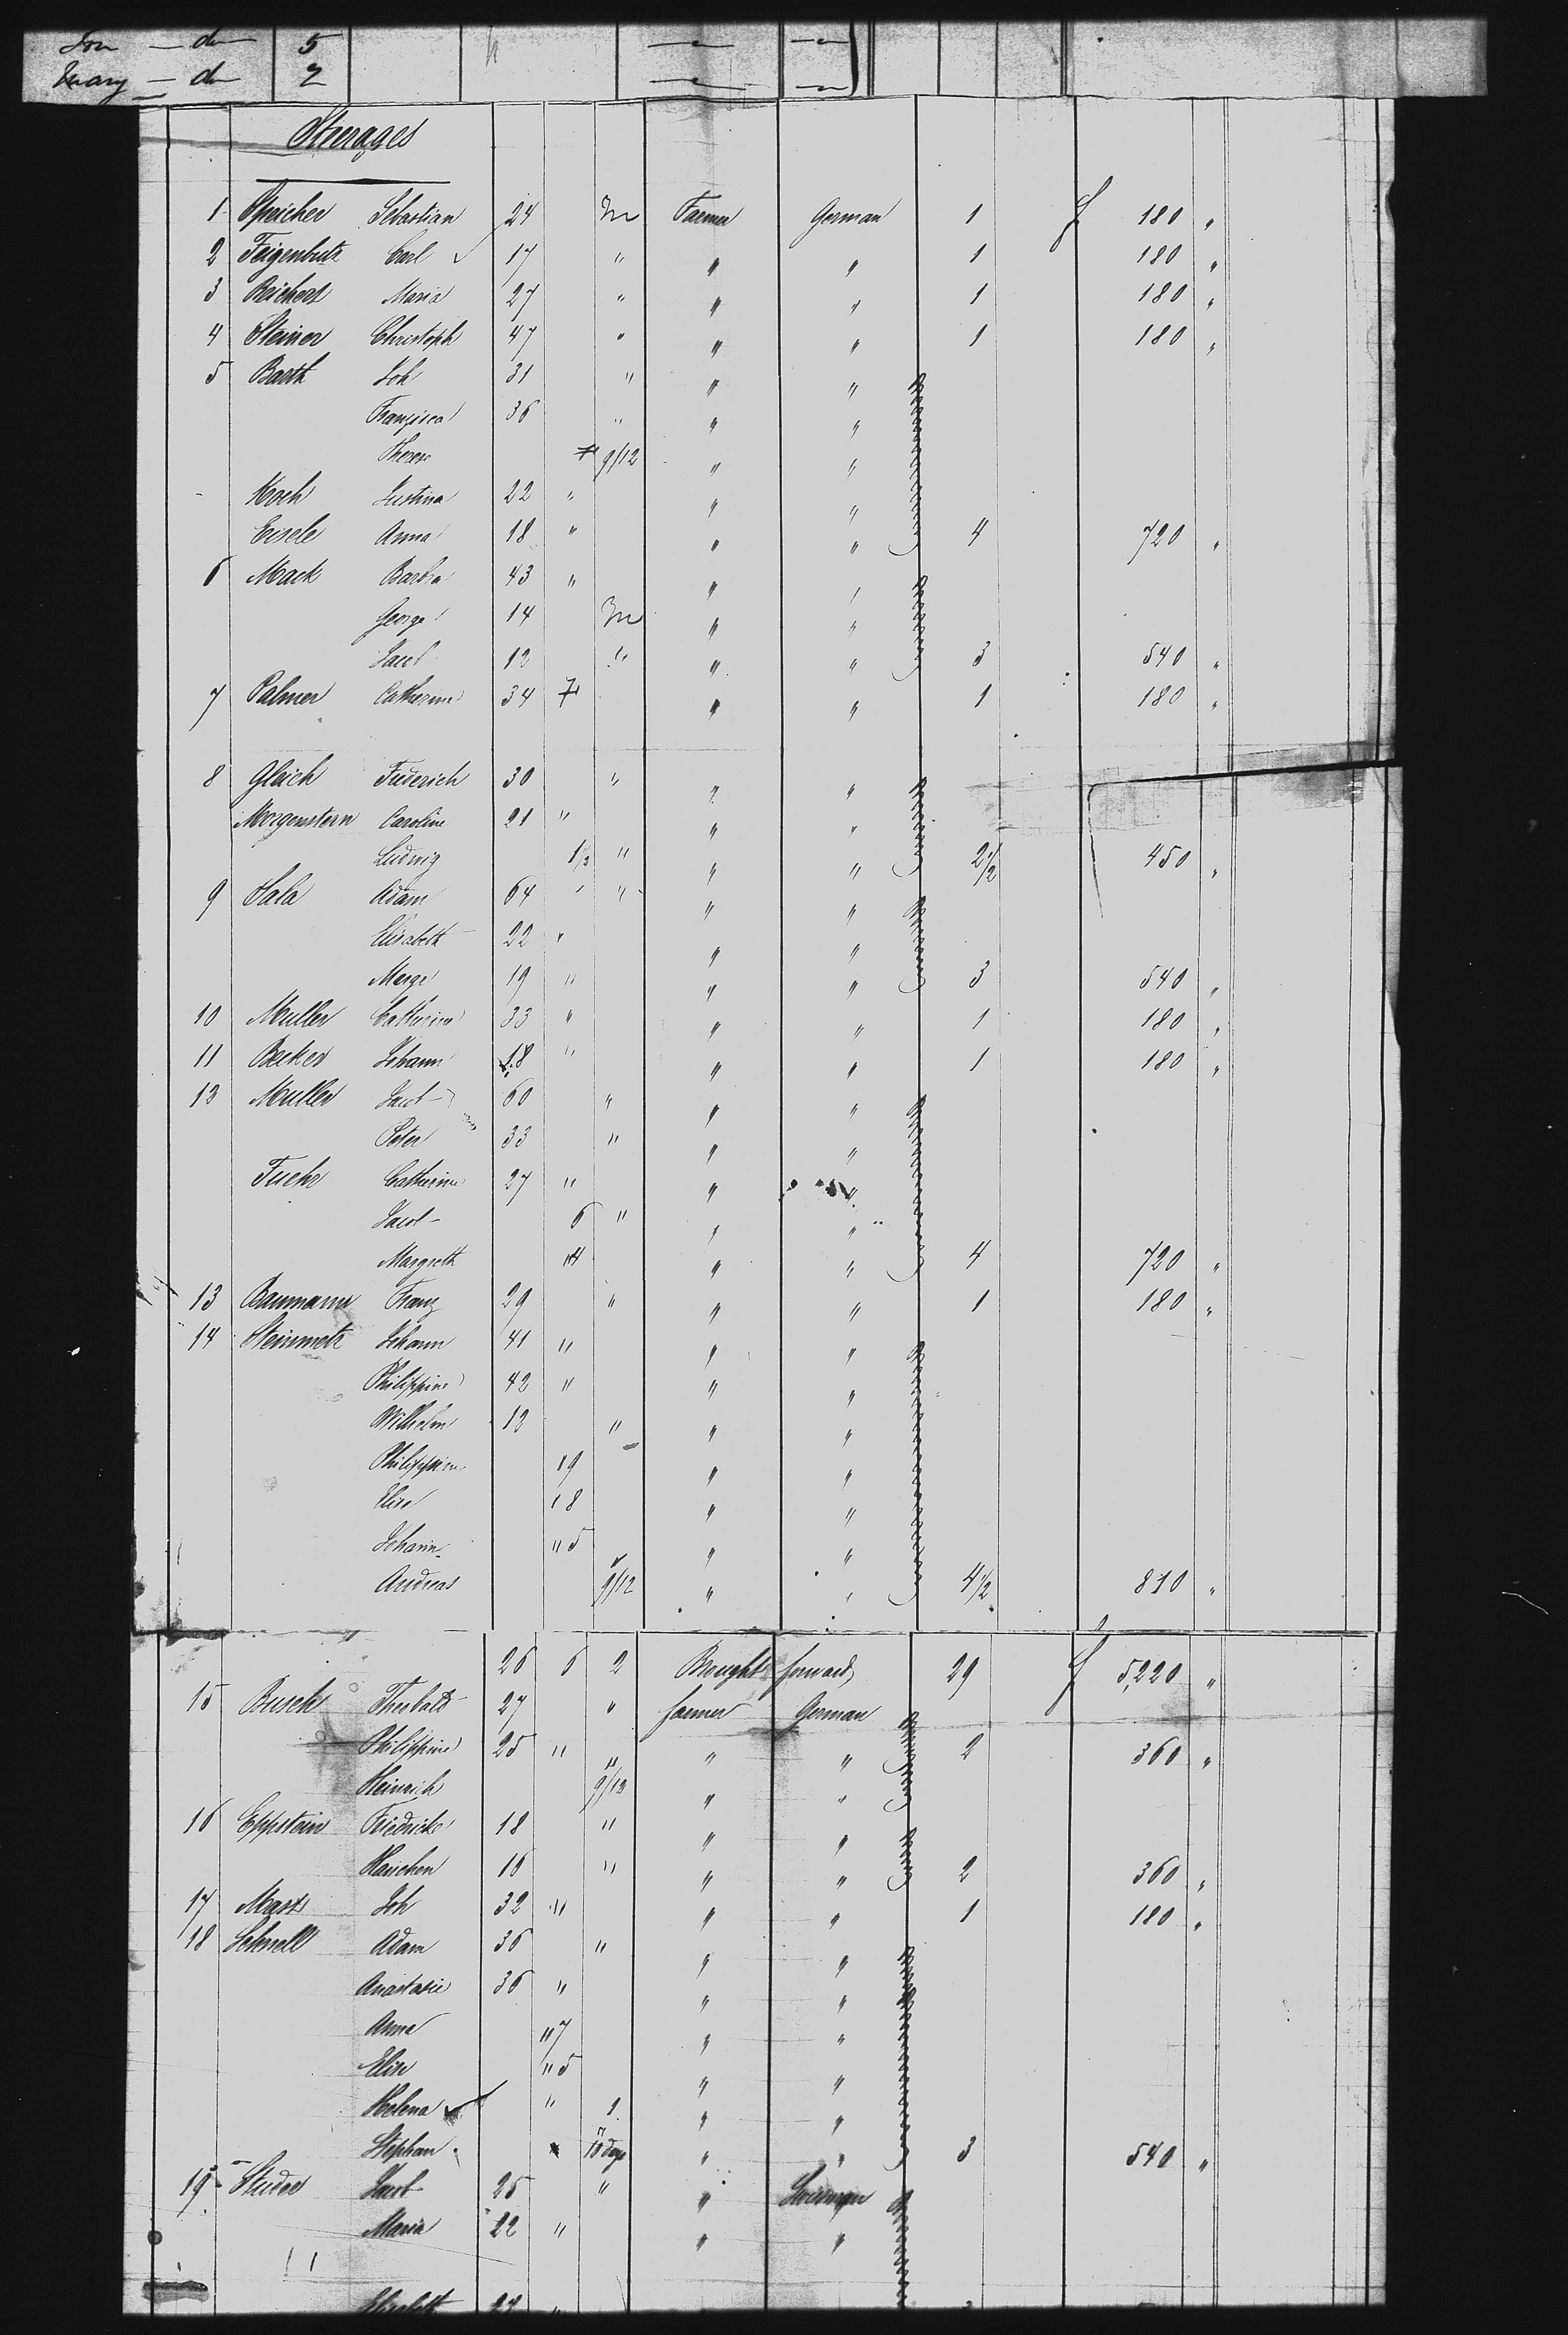 Son — do 5
Mary — do 2
Steerages
1 Speicher Sebastian 24 M Farmer German 1 f 180 "
2 Feigenbutz Carl 17 " " " 1 180 "
3 Reichert Maria 27 " " " 1 180 "
4 Steiner Christoph 47 " " " 1 180 "
5 Barth Joh 31 " " "
Franzisca 36 " " "
Therese 9/12 " "
Koch Justina 22 " " "
Eisele Anna 18 " " " 4 720 "
6 Mack Barbra 43 " " "
George 14 M " "
Jacob 12 " " " 3 540 "
7 Palmer Catherine 34 F " " 1 180 "
8 Gleich Friederich 30 " " "
Morgenstern Caroline 21 " " "
Ludwig 1½ " " " 2½ 450 "
9 Sala Adam 64 " " " "
Elisabeth 22 " " "
Marge 19 " " " 3 540 "
10 Muller Catherine 33 " " " 1 180 "
11 Becker Johann 18 " " " 1 180 "
13 Muller Jacob 60 " " "
Peter 33 " " "
Fuchs Catherine 27 " " "
Jacob 6 " " "
Margreth " 4 " " 4 720 "
13 Baumann Franz 29 " " " 1 180 "
14 Steinmetz Johann 41 " " "
Philippine 42 " " "
Wilhelm 12 " " "
Philippine 19 " "
Elise 18 " "
Johann " 5 " "
Andreas 9/12 " " 4½ 810 "
26 6 2 Brought forward 29 f 5,220 "
15 Busch Theobald 27 " farmer German
Philippine 25 " " " 2 360 "
Heinrich 9/12 " "
16 Eppstein Friedricke 18 " " "
Hanchen 16 " " " 2 360 "
17 Marx Joh 32 " " " 1 180 "
18 Schnell Adam 36 " " "
Anastasie 36 " " "
Anna " 7 " "
Elise " 5 " "
Helena " 1 " "
Stephan 10 days " " 3 540 "
19 Studer Jacob 25 " "
Maria 22 " " "
Elisabeth 27 "